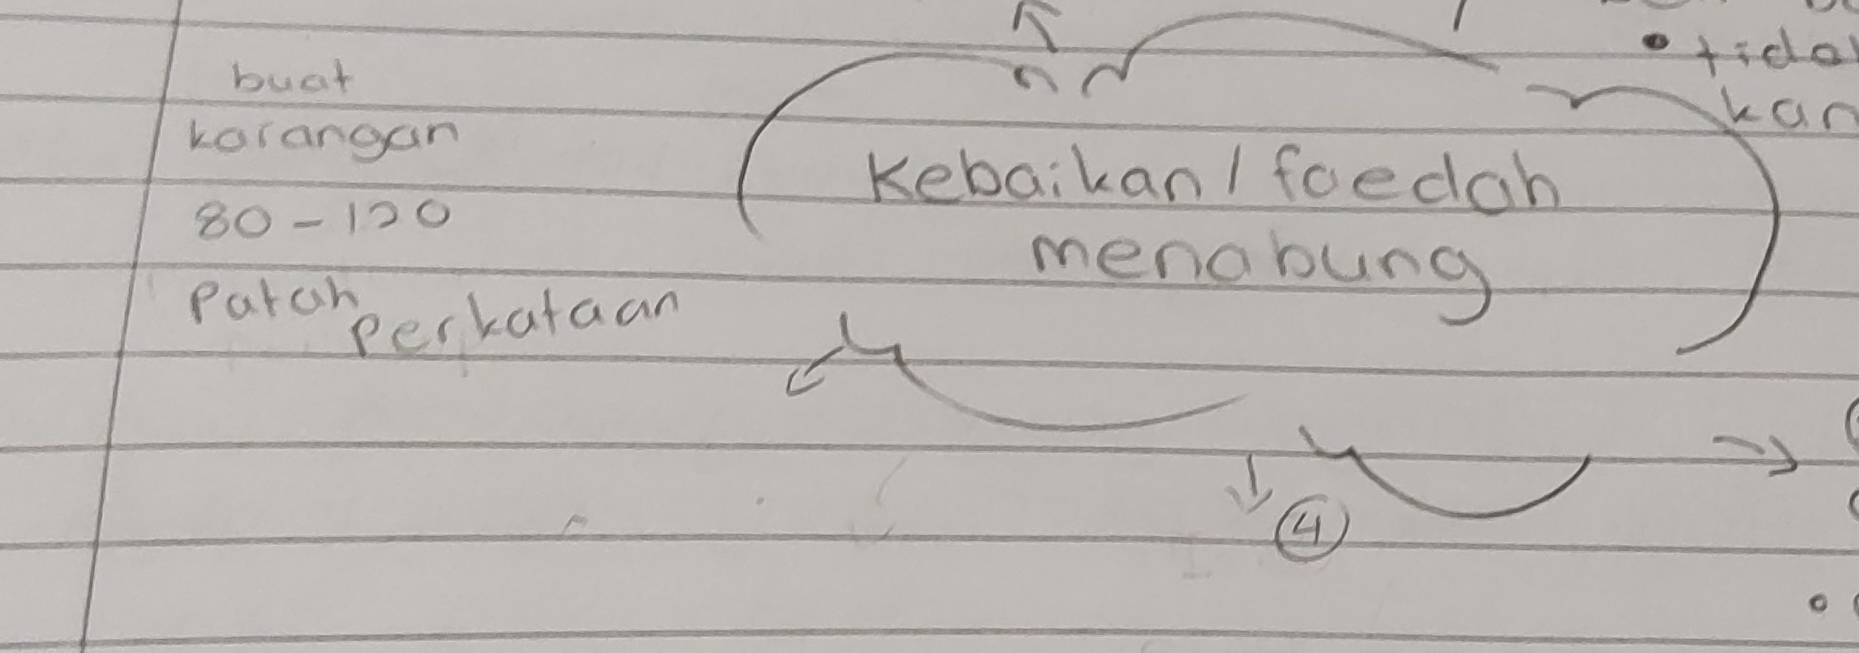 • tida
kan
buat
karangan
80 - 120
Patah perkataan
Kebaikan / faedah
menabung
4